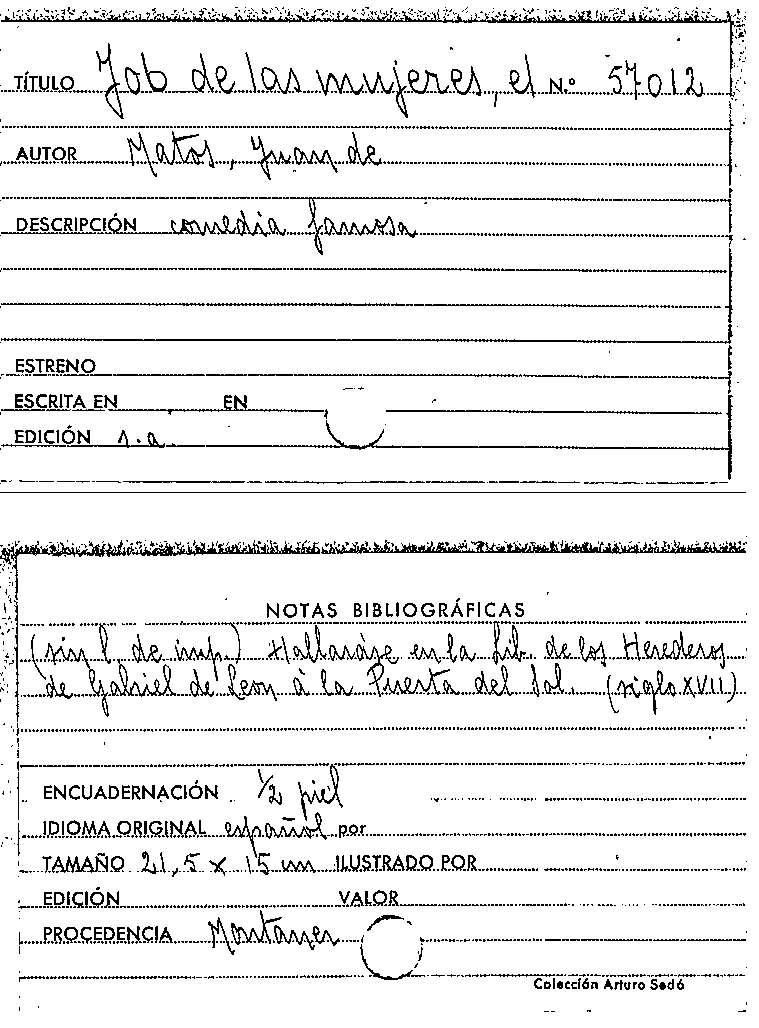 TÍTULO Job de las mujeres, el N.º 57012
AUTOR Matos, Juan de
DESCRIPCIÓN comedia famosa
ESTRENO
ESCRITA EN EN
EDICIÓN s.a.
NOTAS BIBLIOGRÁFICAS
(sin l. de imp.) Hallaráse en la Lib. de los Herederos
de Gabriel de Leon à la Puerta del Sol. (siglo XVII)
ENCUADERNACIÓN ½ piel
IDIOMA ORIGINAL español por
TAMAÑO 21,5 x 15 cm ILUSTRADO POR
EDICIÓN VALOR
PROCEDENCIA Montaner
Colección Arturo Sedó